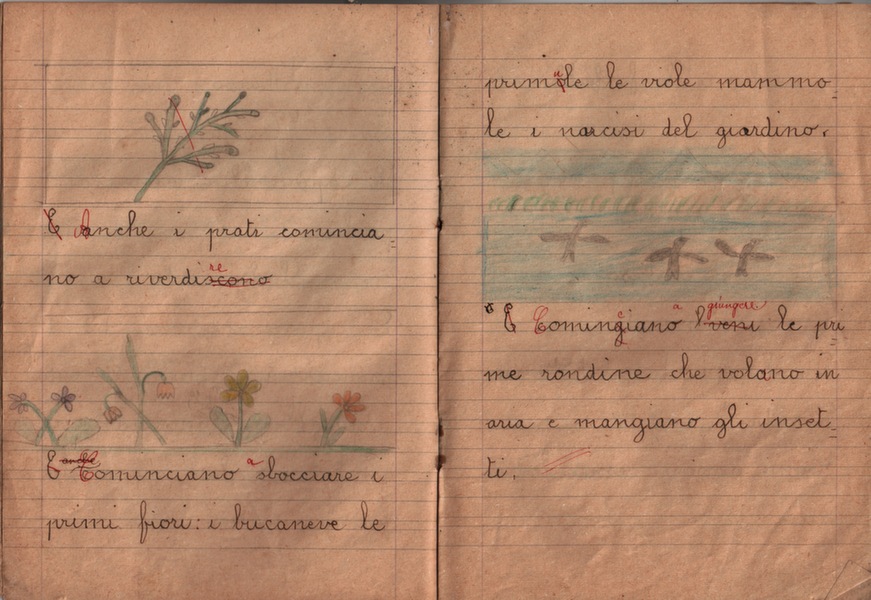 E Anche i prati comincia=
re
no a riverdiscono
E anche Cominciano a sbocciare i
primi fiori: i bucaneve le
primule le viole mammo
le i narcisi del giardino.
E Cominciano a giungere le pri=
me rondine che volano in
aria e mangiano gli inset=
ti.